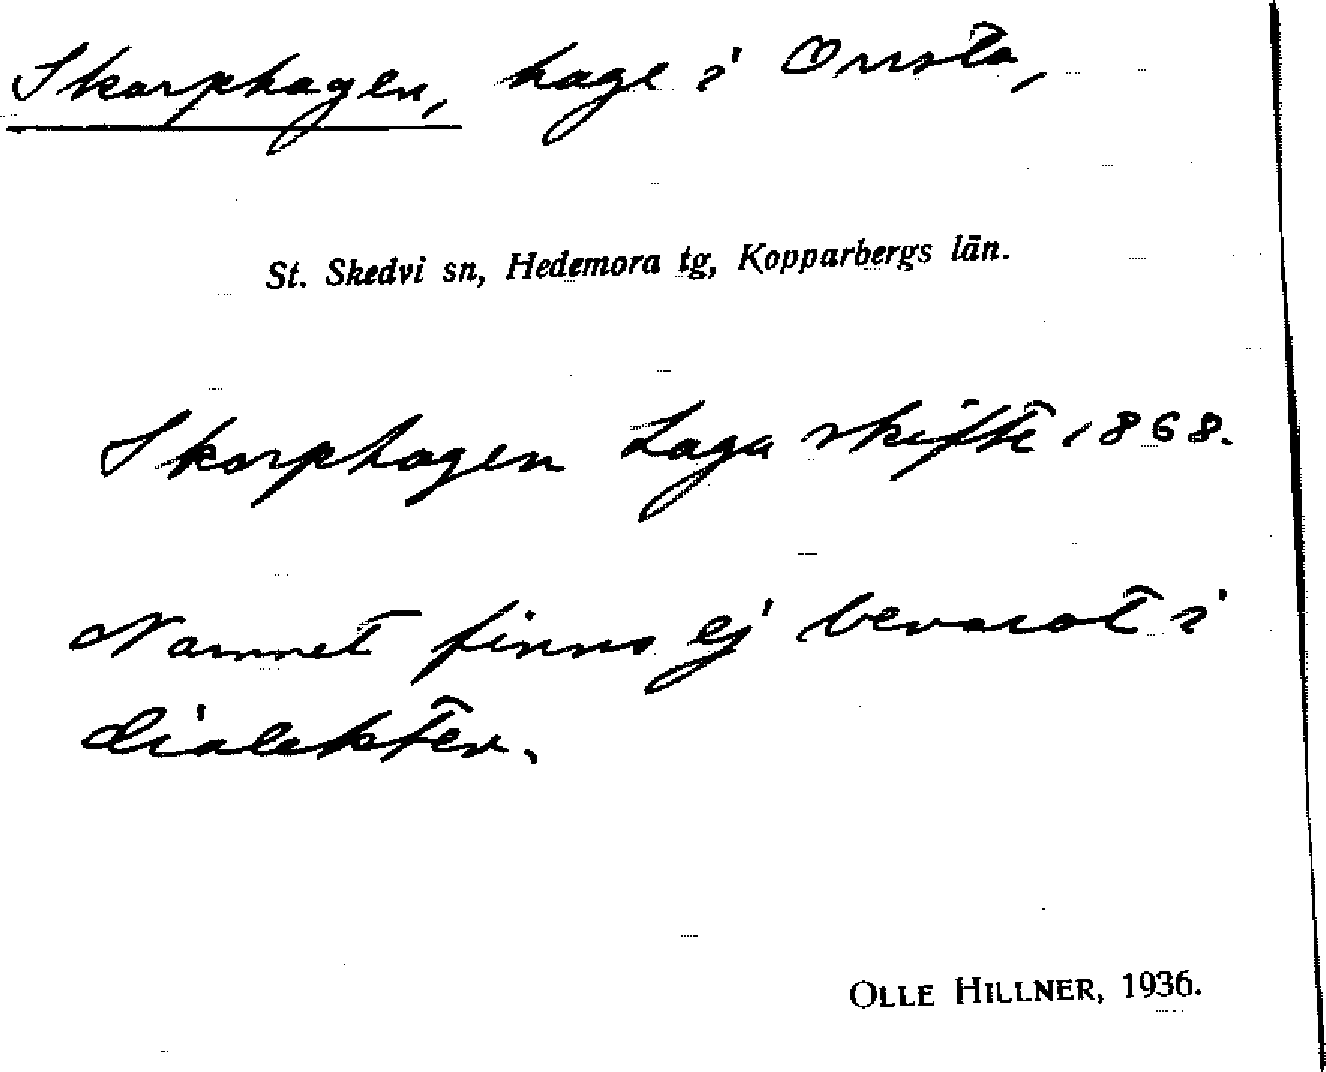 Skorphagen, hage i Orrsta,
St. Skedvi sn, Hedemora tg, Kopparbergs län.
Skorphagen Laga skifte 1868.
Namnet finns ej bevarat i
dialekten.
OLLE HILLNER, 1936.